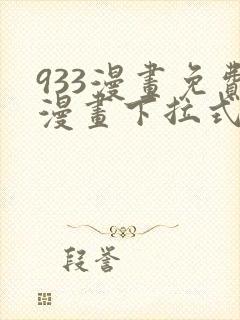 933漫畫免費
漫畫下拉式
段誉